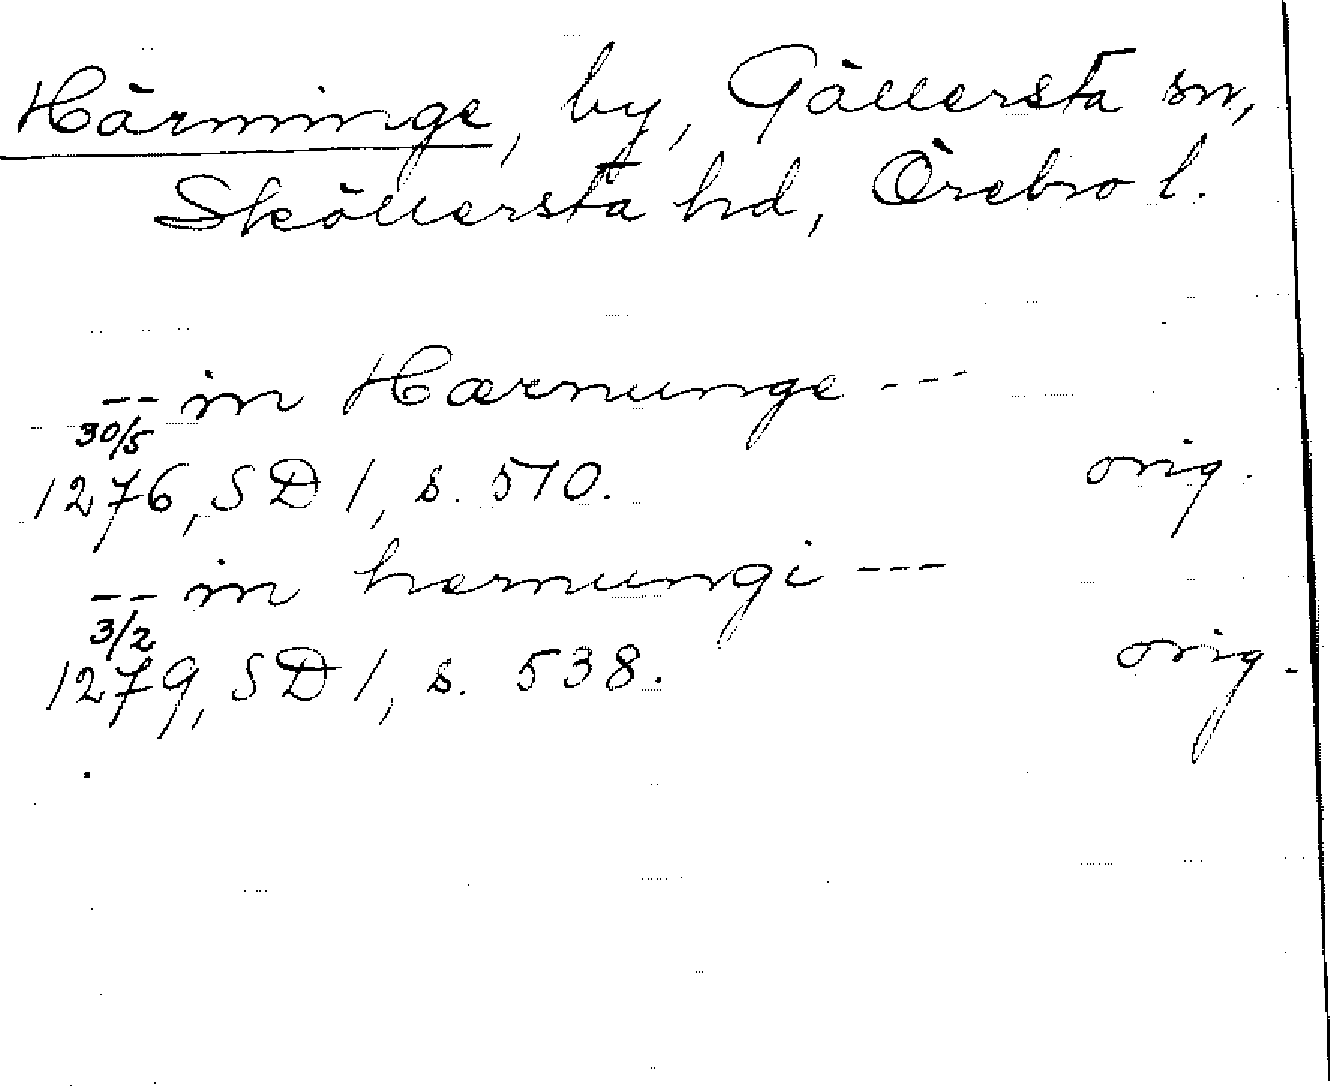 Härminge, by, Gällersta sn,
Sköllersta hd, Örebro l.
-- in Hærnunge ---
30/5
1276, SD 1, s. 510. orig.
-- in hærnungi ---
3/2
1279, SD 1, s. 538. orig.